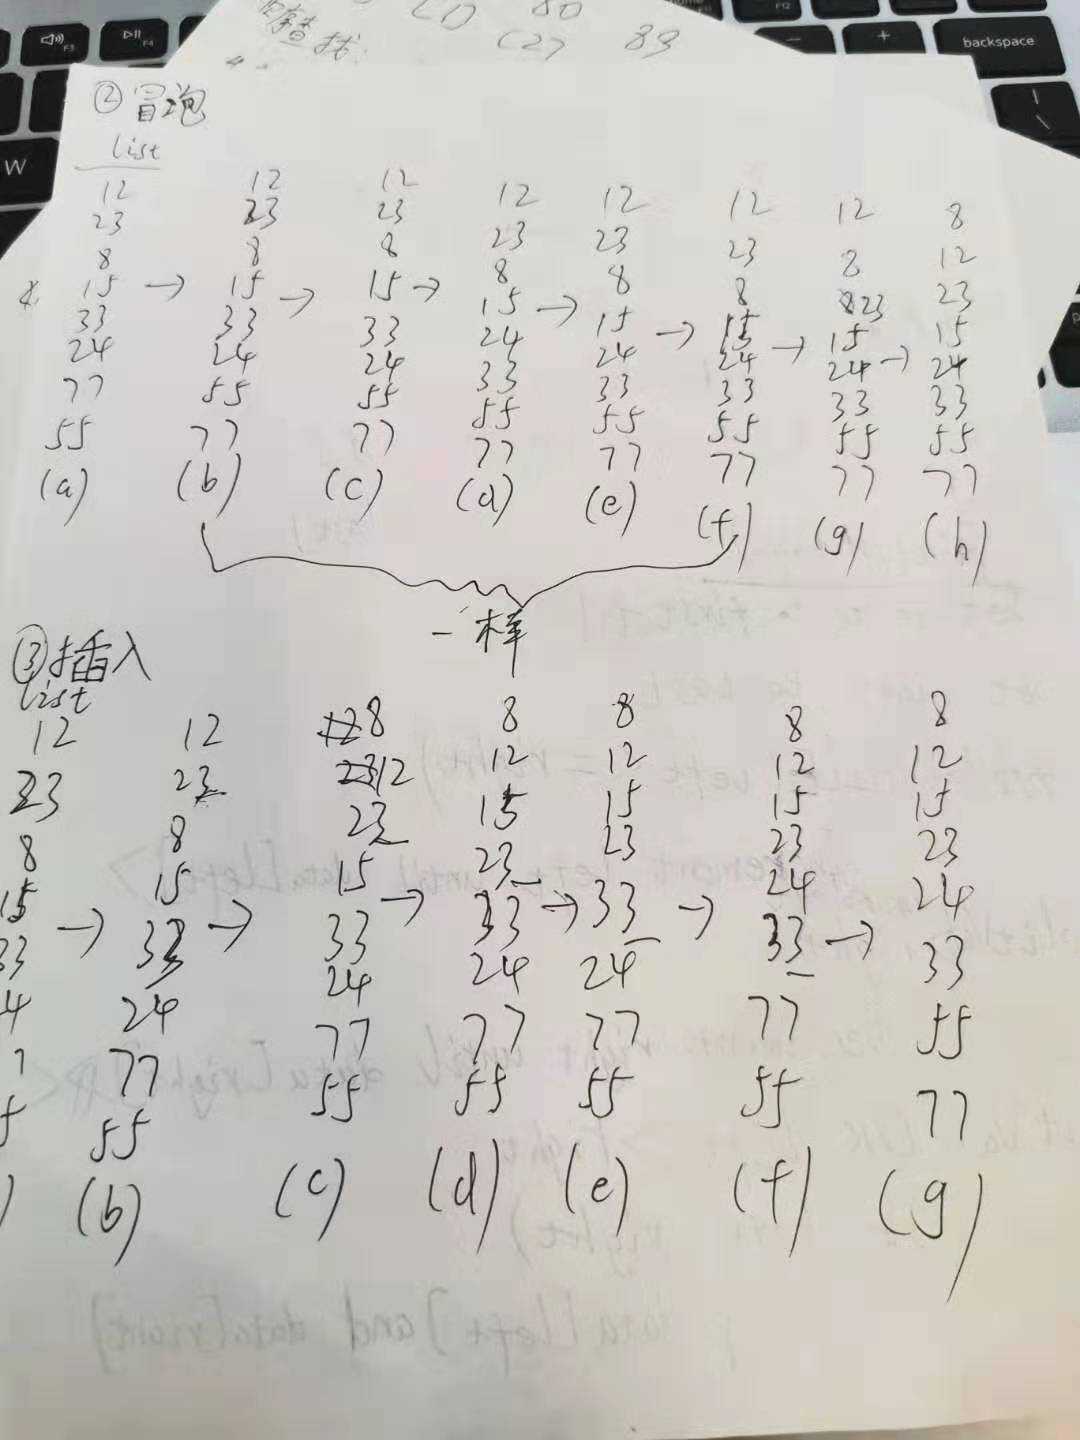 查找
(1) 80
(2) 89
F3
F4
F12
- + backspace
W
②冒泡
list
12 12 12 12 12 12 12 8
23 23 23 23 23 23 8 12
8 8 8 8 8 8 23 23
15 → 15 → 15 → 15 → 15 → 15 → 15 → 15
33 33 33 24 24 24 24 24
24 24 24 33 33 33 33 33
77 55 55 55 55 55 55 55
55 77 77 77 77 77 77 77
(a) (b) (c) (d) (e) (f) (g) (h)
一样
③插入
list
12 12 8 8 8 8 8
23 23 12 12 12 12 12
8 8 23 15 15 15 15
15 15 15 23 23 23 23
33 → 33 → 33 → 33 → 33 → 24 → 24
4 24 24 24 24 33 33
77 77 77 77 77 55
55 55 55 55 55 77
) (b) (c) (d) (e) (f) (g)